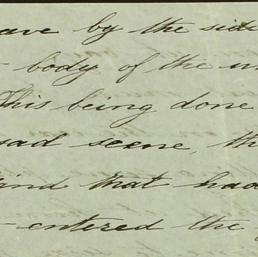 ave by the side
body of the un
This being done
sad scene, th
ind that had
entered the